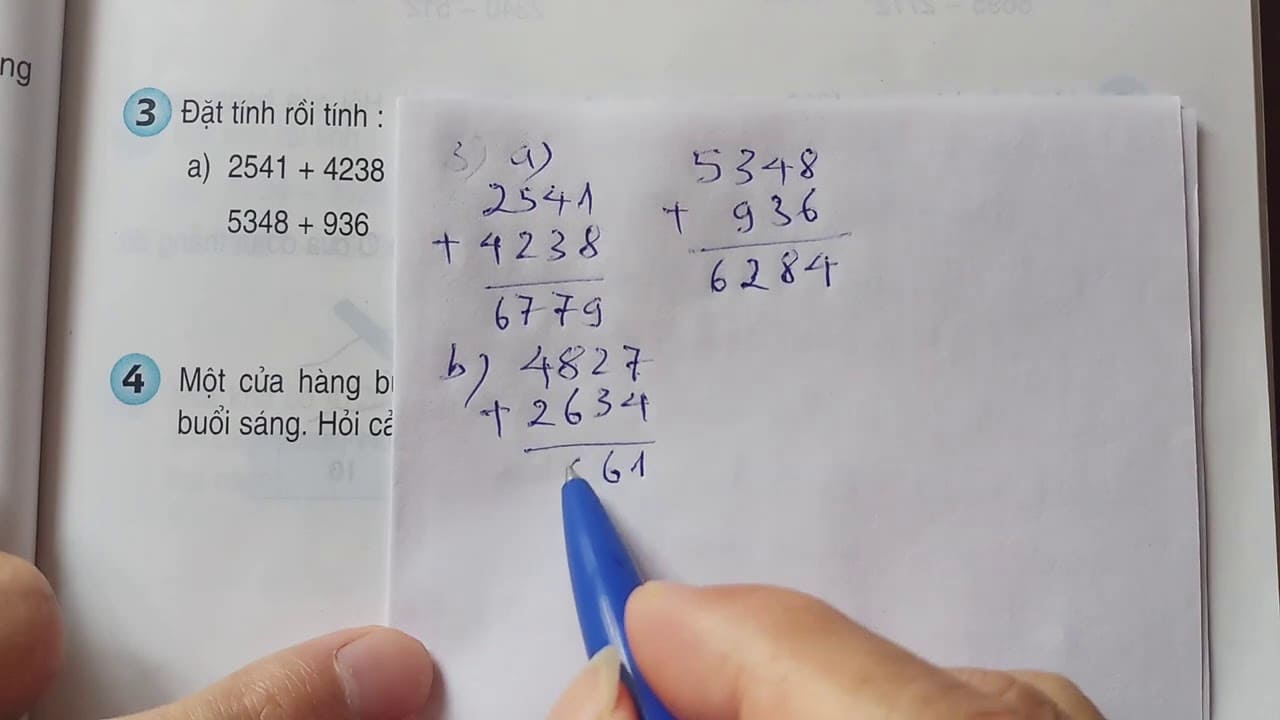 ng
3 Đặt tính rồi tính :
a) 2541 + 4238
5348 + 936
4 Một cửa hàng
buổi sáng. Hỏi
3) a)
2541
+ 4238
6779
5348
+ 936
6284
b) 4827
+ 2634
61